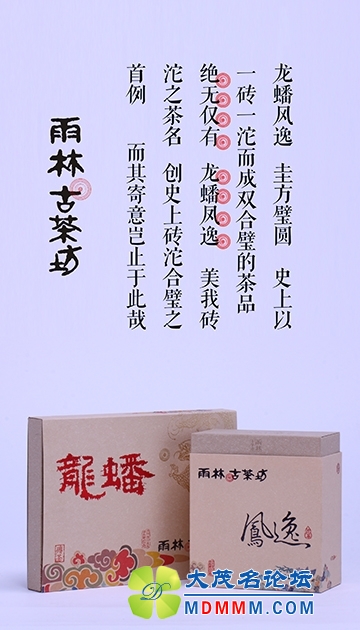 龙蟠风逸 圭方璧圆 史上以
一砖一沱而成双合璧的茶品
绝无仅有 龙蟠凤逸 美我砖
沱之茶名 创史上砖沱合璧之
首例 而其寄意岂止于此哉
雨林古茶坊
龍蟠
雨林
雨林古茶坊
鳳逸
大茂名论坛
MDMMM.COM